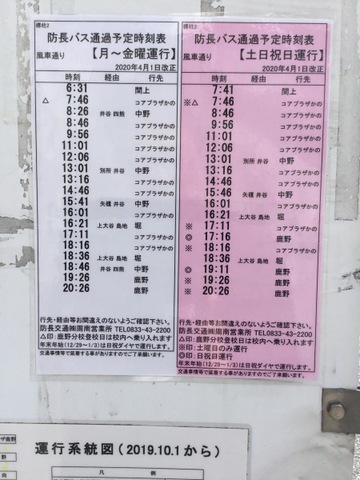 櫻社2
防長バス通過予定時刻表
風車通り 【月～金曜運行】
2020年4月1日改正
時刻 経由 行先
6:31 間上
△ 7:46 コアプラザかの
8:26 井谷 四熊 中野
8:46 コアプラザかの
9:56 コアプラザかの
11:01 コアプラザかの
12:06 コアプラザかの
13:01 別所 井谷 中野
13:16 コアプラザかの
14:46 コアプラザかの
15:41 矢櫃 井谷 中野
16:01 コアプラザかの
16:21 上大谷 島地 堀
17:11 コアプラザかの
18:16 コアプラザかの
18:36 上大谷 島地 堀
18:46 井谷 四熊 中野
19:26 鹿野
20:26 鹿野
行先・経由等お間違えのないようご確認下さい。
防長交通㈱周南営業所 TEL0833-43-2200
△印:鹿野分校登校日は校内へ乗り入れます
年末年始(12/29～1/3)は日祝ダイヤで運行します。
交通事情等で延着する事がありますのでご了承願います。
防長バス通過予定時刻表
風車通り 【土日祝日運行】
2020年4月1日改正
時刻 経由 行先
7:41 間上
※△ 7:46 コアプラザかの
※ 8:46 コアプラザかの
9:56 コアプラザかの
11:01 コアプラザかの
12:06 コアプラザかの
13:01 別所 井谷 中野
13:16 コアプラザかの
14:46 コアプラザかの
15:46 矢櫃 井谷 中野
16:01 コアプラザかの
16:21 上大谷 島地 堀
※ 17:11 コアプラザかの
◎ 17:16 鹿野
※ 18:16 コアプラザかの
18:36 上大谷 島地 堀
◎ 19:11 鹿野
※ 19:26 鹿野
※ 20:26 鹿野
行先・経由等お間違えのないようご確認下さい。
防長交通㈱周南営業所 TEL0833-43-2200
△印:鹿野分校登校日は校内へ乗り入れます
※印:土曜日のみ運行
◎印:日祝日運行
年末年始(12/29～1/3)は日祝ダイヤで運行します。
交通事情等で延着する事がありますのでご了承願います。
運行系統図(2019.10.1から)
凡 例